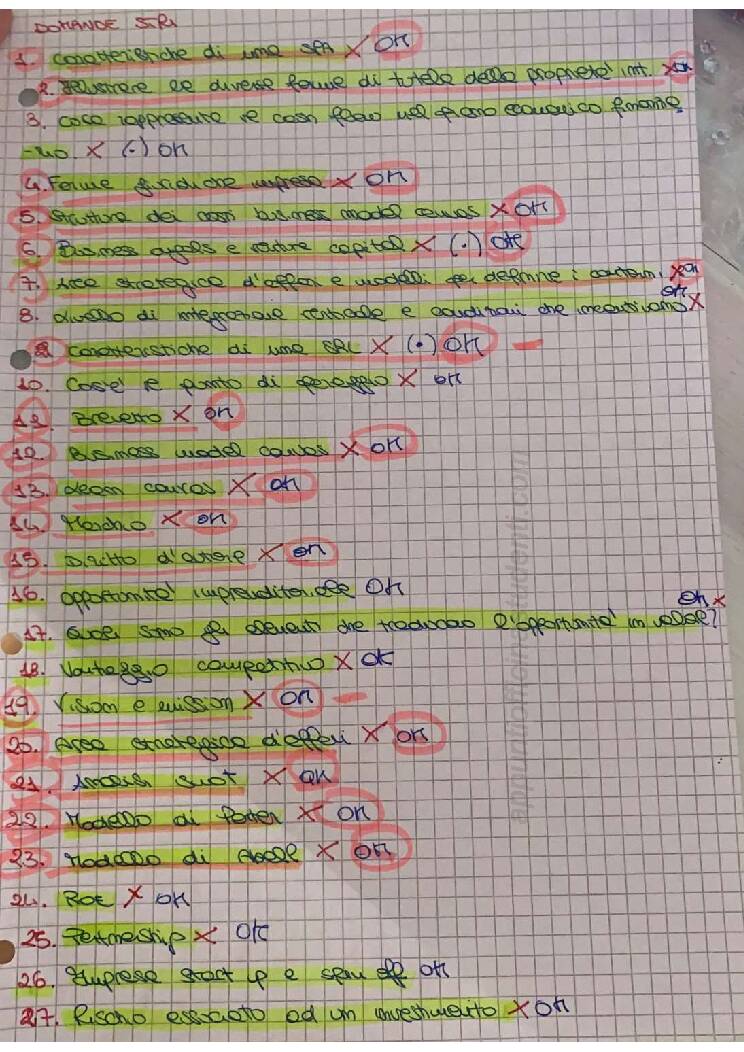 DOMANDE
1. Caratteristiche di una SPA X OK
2. Illustrare le diverse forme di tutela della proprietà int. X OK
3. Cosa rappresenta il cash flow nel piano economico finanzia
-rio. X (•) OK
4. Forme giuridiche impresa X OK
5. Struttura dei costi business model canvas X OK
6. Business angels e venture capital X (•) OK
7. Area strategica d'affari e modelli per definirne i confini. X OK
8. Livello di integrazione verticale e condizioni che incentivano X OK
9. Caratteristiche di una SRL X (•) OK —
10. Cos'è il punto di pareggio X OK
Brevetto X OK
12. Business model canvas X OK
13. Lean canvas X OK
14. Marchio X OK
15. Diritto d'autore X OK
16. Opportunità imprenditoriale OK
17. Quali sono gli elementi che traducono l'opportunità in valore? OK X
18. Vantaggio competitivo X OK
19. Vision e mission X OK —
20. Area strategica d'affari X OK
21. Analisi swot X OK
22. Modello di Porter X OK
23. Modello di Abell X OK
24. ROE X OK
25. Partnership X OK
26. Imprese start up e spin off OK
27. Rischio associato ad un investimento X OK
appuntiofficinastudenti.com